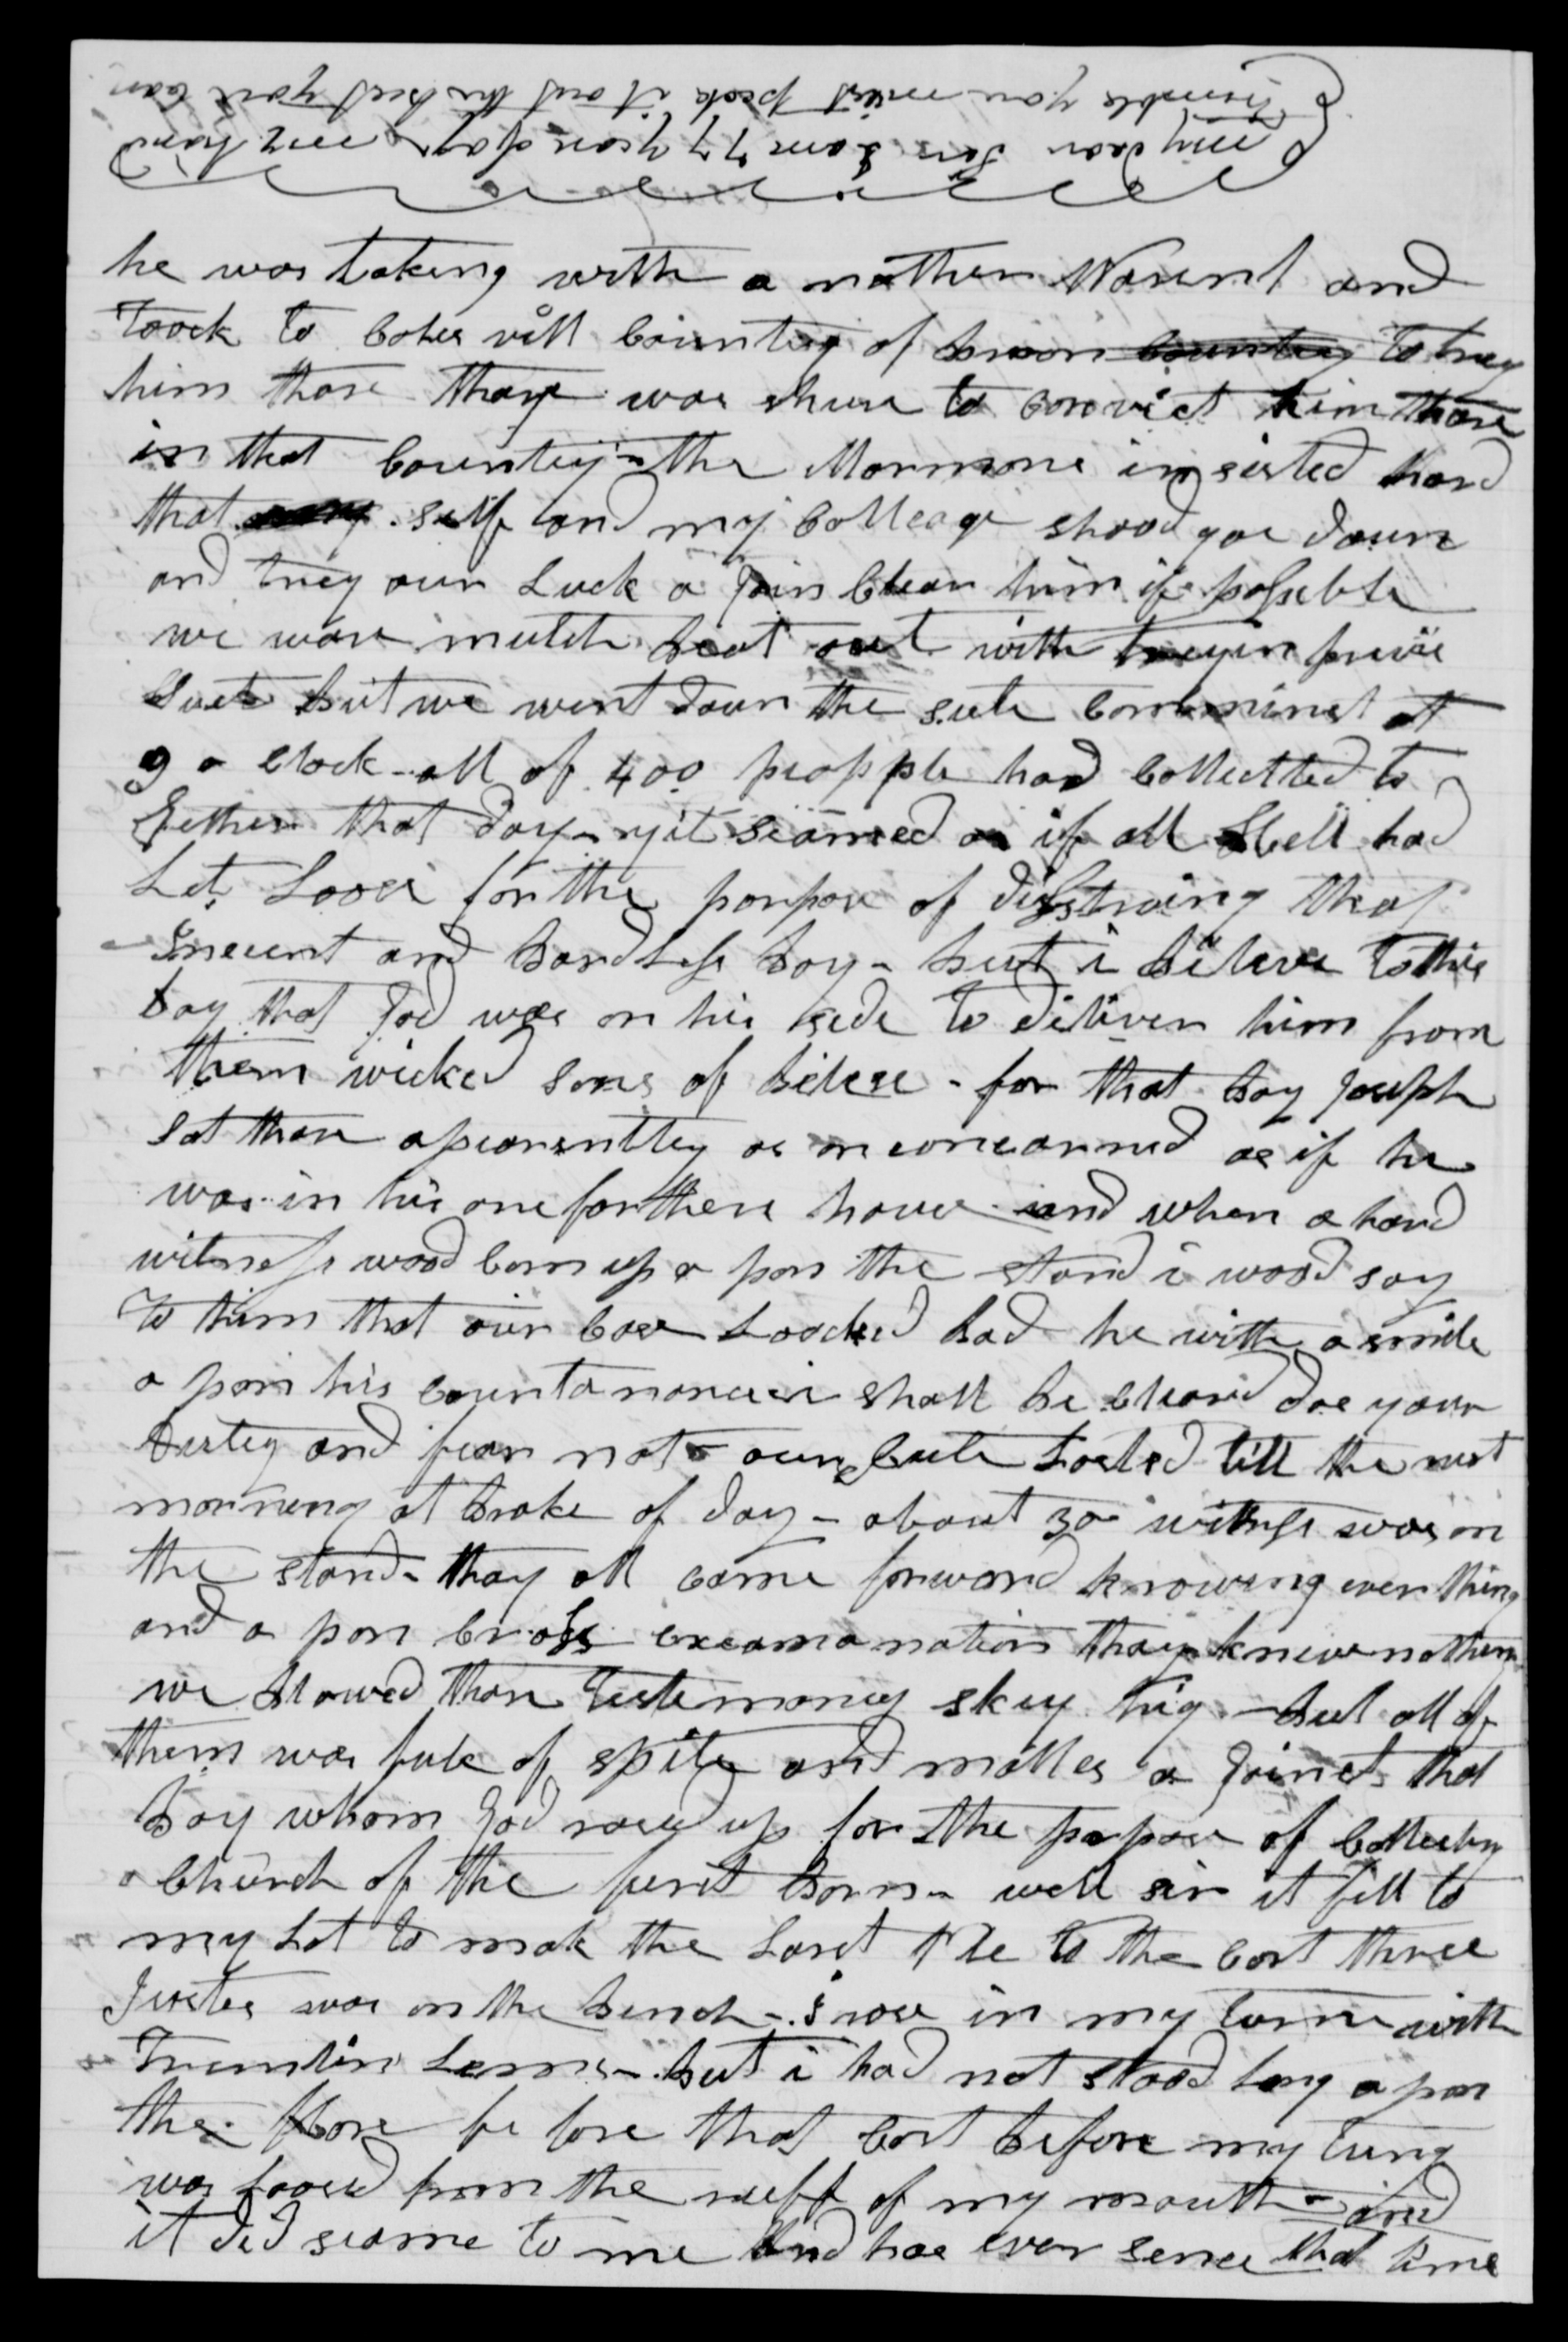 my dear Sir I am 77 years of age my hand
trimbls you must pick it out the best you can
he was taking with a nother Warent and
toock to Coles vill Countey of Broom <s>Countey</s> to trey
him thare thay was shure to convict him thare
in that Countey - the Mormons in sisted hard
that my self and my Colleage shood goe down
and trey our Luck a gain Clear him if possible
we ware mutch beat out with the preevis
Sute but we went down the sute Commined at
9 o clock - all of 400 peapple had Collectted to
gether that day - yit seamed as if all Hell had
Let Loose for the porpose of distroing that
inecent and harmLess boy - but i beleve to this
day that god was on his side to deliver him from
them wicked sons of belial - for that boy Joseph
sat thare apearanttley as onconcarned as if he
was in his one farthers house and when a hard
witness wood com up a pon the stand i wood say
to him that our Case Loocked bad he with a smile
a pon his countanance i shall be cleard doe your
dutey and fear not - our Sute Lasted till the next
morning at brake of day - about 30 witness was on
the stand - thay all came forward knowing everything
and a pon cross examanation thay knew nothing
we blowed thare testemoney skey hig - but all of
them was full of spite and malles a gainst that
boy whom god rased up for the porpose of Collecting
a Church of the furst born - well sir it fell to
my Lot to mak the Larst Ple to the Cort three
Justes was on the bench - i rose in my turn with
tremblin Lems - but i had not stood long a pon
the flore be fore that Cort before my tung
was Loosed from the ruff of my mouth - and
it did seame to me and has ever sence that time